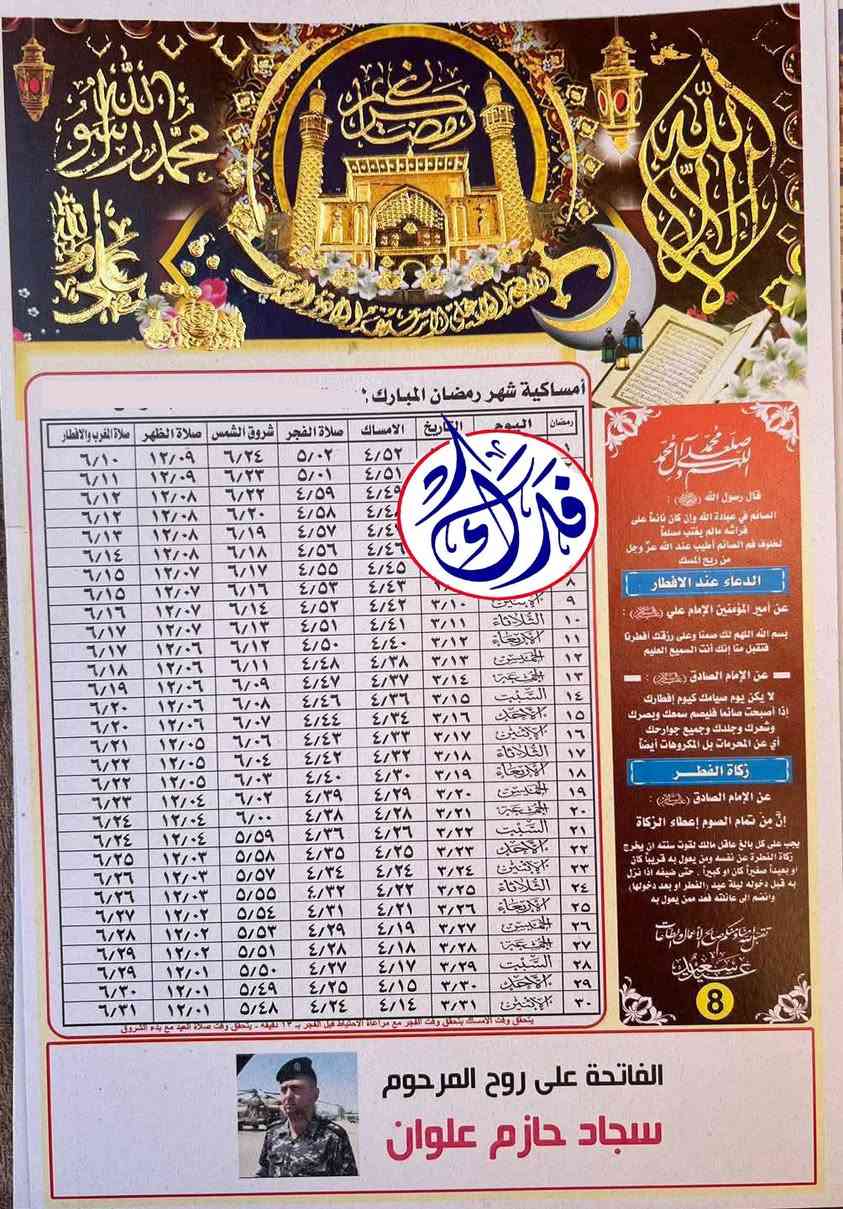 محمد رسول الله
علي ولي الله
رمضان كريم
لا إله إلا الله
أمساكية شهر رمضان المبارك
رمضان اليوم التاريخ الامساك صلاة الفجر شروق الشمس صلاة الظهر صلاة المغرب والافطار
١ ٤/٥٢ ٥/٠٢ ٦/٢٤ ١٢/٠٩ ٦/١٠
٤/٥١ ٥/٠١ ٦/٢٣ ١٢/٠٩ ٦/١١
٤/٤٩ ٤/٥٩ ٦/٢٢ ١٢/٠٨ ٦/١٢
٤/٥٨ ٦/٢٠ ١٢/٠٨ ٦/١٢
٤/٥٧ ٦/١٩ ١٢/٠٨ ٦/١٣
٤/٤٦ ٤/٥٦ ٦/١٨ ١٢/٠٨ ٦/١٤
٤/٤٥ ٤/٥٥ ٦/١٧ ١٢/٠٧ ٦/١٥
٨ ٤/٤٣ ٤/٥٣ ٦/١٦ ١٢/٠٧ ٦/١٥
٩ الاثنين ٣/١٠ ٤/٤٢ ٤/٥٢ ٦/١٤ ١٢/٠٧ ٦/١٦
١٠ الثلاثاء ٣/١١ ٤/٤١ ٤/٥١ ٦/١٣ ١٢/٠٧ ٦/١٧
١١ الاربعاء ٣/١٢ ٤/٤٠ ٤/٥٠ ٦/١٢ ١٢/٠٦ ٦/١٧
١٢ الخميس ٣/١٣ ٤/٣٨ ٤/٤٨ ٦/١١ ١٢/٠٦ ٦/١٨
١٣ الجمعة ٣/١٤ ٤/٣٧ ٤/٤٧ ٦/٠٩ ١٢/٠٦ ٦/١٩
١٤ السبت ٣/١٥ ٤/٣٦ ٤/٤٦ ٦/٠٨ ١٢/٠٦ ٦/٢٠
١٥ الاحد ٣/١٦ ٤/٣٤ ٤/٤٤ ٦/٠٧ ١٢/٠٦ ٦/٢٠
١٦ الاثنين ٣/١٧ ٤/٣٣ ٤/٤٣ ٦/٠٦ ١٢/٠٥ ٦/٢١
١٧ الثلاثاء ٣/١٨ ٤/٣٢ ٤/٤٢ ٦/٠٤ ١٢/٠٥ ٦/٢٢
١٨ الاربعاء ٣/١٩ ٤/٣٠ ٤/٤٠ ٦/٠٣ ١٢/٠٥ ٦/٢٢
١٩ الخميس ٣/٢٠ ٤/٢٩ ٤/٣٩ ٦/٠٢ ١٢/٠٤ ٦/٢٣
٢٠ الجمعة ٣/٢١ ٤/٢٨ ٤/٣٨ ٦/٠٠ ١٢/٠٤ ٦/٢٤
٢١ السبت ٣/٢٢ ٤/٢٦ ٤/٣٦ ٥/٥٩ ١٢/٠٤ ٦/٢٤
٢٢ الاحد ٣/٢٣ ٤/٢٥ ٤/٣٥ ٥/٥٨ ١٢/٠٣ ٦/٢٥
٢٣ الاثنين ٣/٢٤ ٤/٢٣ ٤/٣٤ ٥/٥٧ ١٢/٠٣ ٦/٢٦
٢٤ الثلاثاء ٣/٢٥ ٤/٢٢ ٤/٣٢ ٥/٥٥ ١٢/٠٣ ٦/٢٦
٢٥ الاربعاء ٣/٢٦ ٤/٢١ ٤/٣١ ٥/٥٤ ١٢/٠٢ ٦/٢٧
٢٦ الخميس ٣/٢٧ ٤/١٩ ٤/٢٩ ٥/٥٣ ١٢/٠٢ ٦/٢٨
٢٧ الجمعة ٣/٢٨ ٤/١٨ ٤/٢٨ ٥/٥١ ١٢/٠٢ ٦/٢٩
٢٨ السبت ٣/٢٩ ٤/١٧ ٤/٢٧ ٥/٥٠ ١٢/٠١ ٦/٢٩
٢٩ الاحد ٣/٣٠ ٤/١٥ ٤/٢٥ ٥/٤٩ ١٢/٠١ ٦/٣٠
٣٠ الاثنين ٣/٣١ ٤/١٤ ٤/٢٤ ٥/٤٨ ١٢/٠١ ٦/٣١
يتحقق وقت الامساك بتحقق وقت الفجر مع مراعاة الاحتياط قبل الفجر بـ ١٣ دقيقة - يتحقق وقت صلاة العيد مع بدء الشروق
فدك
اللهم صل على محمد وآل محمد
قال رسول الله (ﷺ) :
الصائم في عبادة الله وإن كان نائماً على
فراشه مالم يغتب مسلماً
لخلوف فم الصائم أطيب عند الله عزّ وجل
من ريح المسك
الدعاء عند الافطار
عن أمير المؤمنين الإمام علي :
بسم الله اللهم لك صمنا وعلى رزقك أفطرنا
فتقبل منا إنك أنت السميع العليم
عن الإمام الصادق :
لا يكن يوم صيامك كيوم إفطارك
إذا أصبحت صائما فليصم سمعك وبصرك
وشعرك وجلدك وجميع جوارحك
أي عن المحرمات بل المكروهات أيضاً
زكاة الفطر
عن الإمام الصادق :
إنَّ مِن تمام الصوم إعطاء الزكاة
يجب على كل بالغ عاقل مالك لقوت سنته ان يخرج
زكاة الفطرة عن نفسه ومن يعول به قريباً كان
او بعيداً صغيراً كان او كبيراً . حتى ضيفه اذا نزل
به قبل دخوله ليلة عيد (الفطر او بعد دخولها)
وانضم الى عائلته فعد ممن يعول به
تقبل الله منا ومنكم صالح الأعمال والطاعات
عيد سعيد
8
الفاتحة على روح المرحوم
سجاد حازم علوان